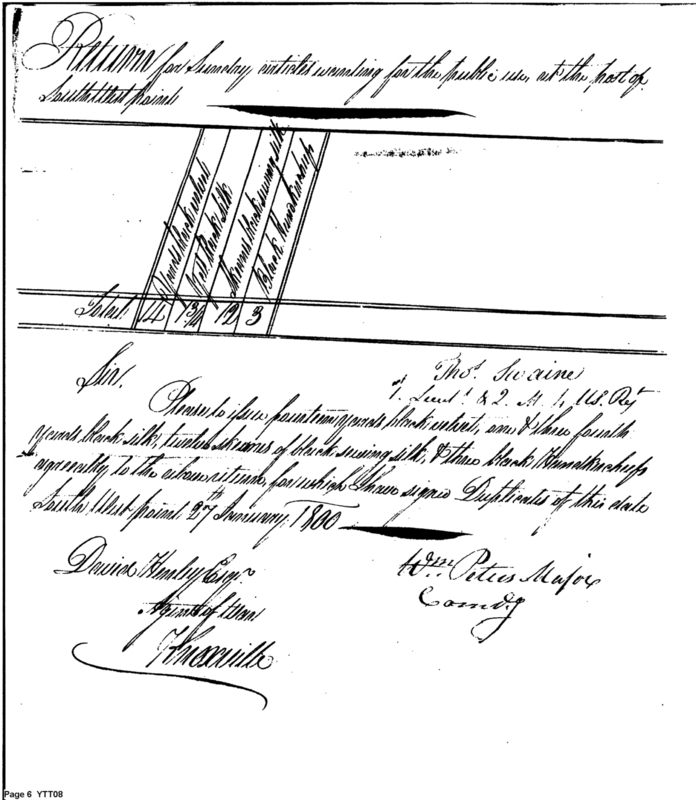 Return for Sundry articles wanting for the public use, at the post of
South West point
Yards black velvet
Yds. Black Silk
Skeanes black sewing silk
Black Handkerchiefs
Total 14 1 3/4 12 3
Thos. Swaine
1st. Lieut. & Q. M. 4, US. Regt
Sir.
Please to issue fourteen yards black velvet, one & three fourth
yards black silk, twelve skeanes of black sewing silk, & three black Handkerchiefs
agreeably to the above return, for which I have signed Duplicates of this date
South West point 27th January 1800
David Henley Esqr.
Agent of War
Knoxville
Wm Peters Major
Comdg
Page 6 YTT08